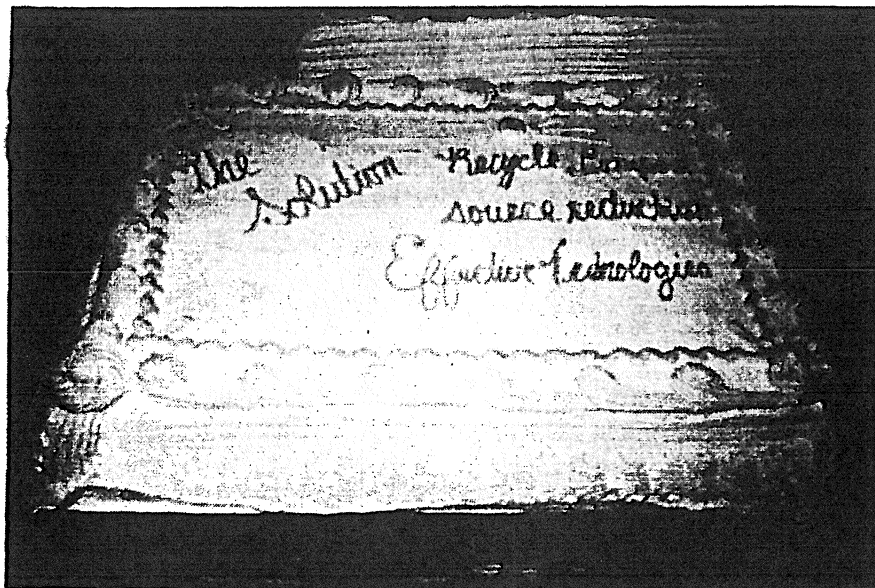 The
Solution
Recycle
source reduction
Effective Technologies